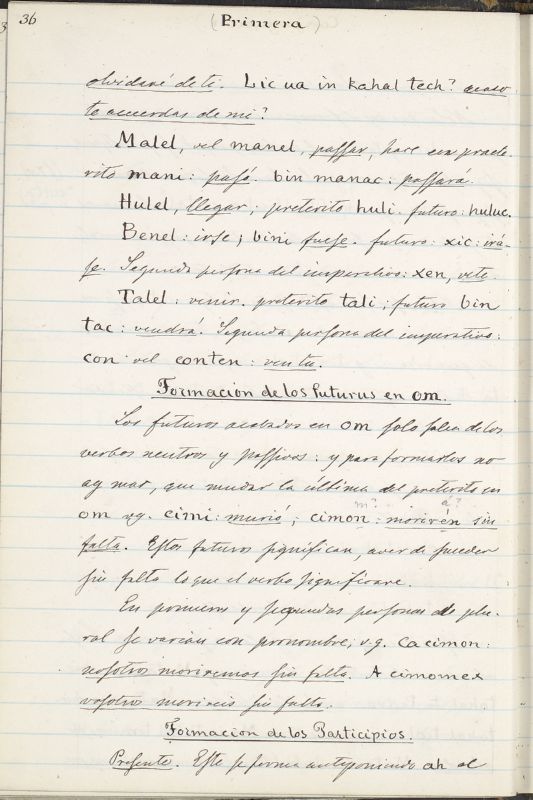 36 (Primera)
olvidaré de ti. Lic ua in kahal tech? acaso
te acuerdas de mi?
Malel, vel manel, passar, hace en prete-
rito mani: pasó. bin manac: passará.
Hulel, llegar; preterito huli. futuro: huluc.
Benel: irse; bini fuese. futuro: xic: irá-
se. Segunda persona del imperativo: xen, vete.
Talel: venir. preterito tali; futuro bin
tac: vendrá. Segunda persona del imperativo:
con vel conten: ven tu.
Formacion de los futurus en om.
Los futuros acabados en om solo salen de los
verbos neutros y passivos: y para formarlos no
ay mas, que mudar la última del preterito en
m? á?
om vg. cimi: murió; cimon: morirén sin
falta. Estos futuros significan, aver de suceder
sin falta lo que el verbo significare.
En primeras y segundas personas de plu-
ral se varian con pronombre; v.g. Ca cimon:
nosotros moriremos sin falta. A cimomex
vosotros moriréis sin falta.
Formacion de los Participios.
Presente. Este se forma anteponiendo ah al